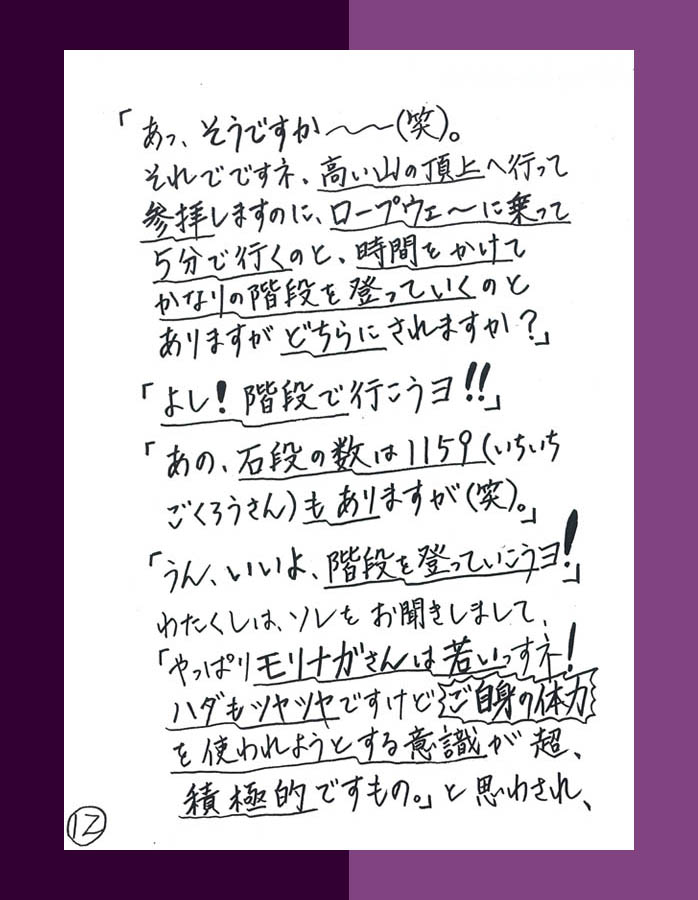 「あっ、そうですか〜〜(笑)。
それでですネ、高い山の頂上へ行って
参拝しますのに、ロープウェ〜に乗って
5分で行くのと、時間をかけて
かなりの階段を登っていくのと
ありますがどちらにされますか?」
「よし!階段で行こうヨ!!」
「あの、石段の数は1159(いちいち
ごくろうさん)もありますが(笑)。」
「うん、いいよ、階段を登っていこうヨ!」
わたくしは、ソレをお聞きしまして、
「やっぱりモリナガさんは若いっすネ!
ハダもツヤツヤですけどご自身の体力
を使われようとする意識が超、
積極的ですもの。」と思わされ、
12